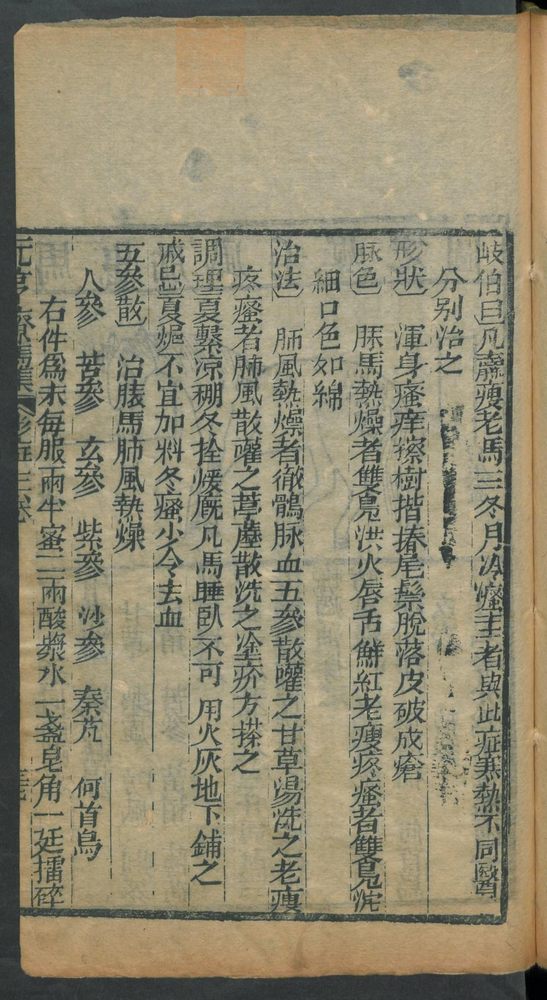 岐伯曰凡羸瘦老馬三冬月冷瘙主者與此症寒熱不同醫
分别治之
形狀 渾身瘙痒擦樹揩椿尾鬃脫落皮破成瘡
脉色 膘馬熱燥者雙鳧洪火唇舌鮮紅老瘦疼瘙者雙鳧沱
細口色如綿
治法 肺風熱燥者徹鶻脉血五參散嚾之甘草湯洗之老瘦
疼瘙者肺風散嚾之葶藶散洗之塗疥方搽之
調理夏繫涼棚冬拴煖厩凡馬睡臥不可 用火灰地下鋪之
戒忌夏熰不宜加料冬瘙少令去血
五參散 治膘馬肺風熱燥
人參 苦參 玄參 紫參 沙參 秦艽 何首烏
右件爲末每服兩半蜜二兩酸漿水一盞皂角一廷擂碎
元亨療馬集 卷三